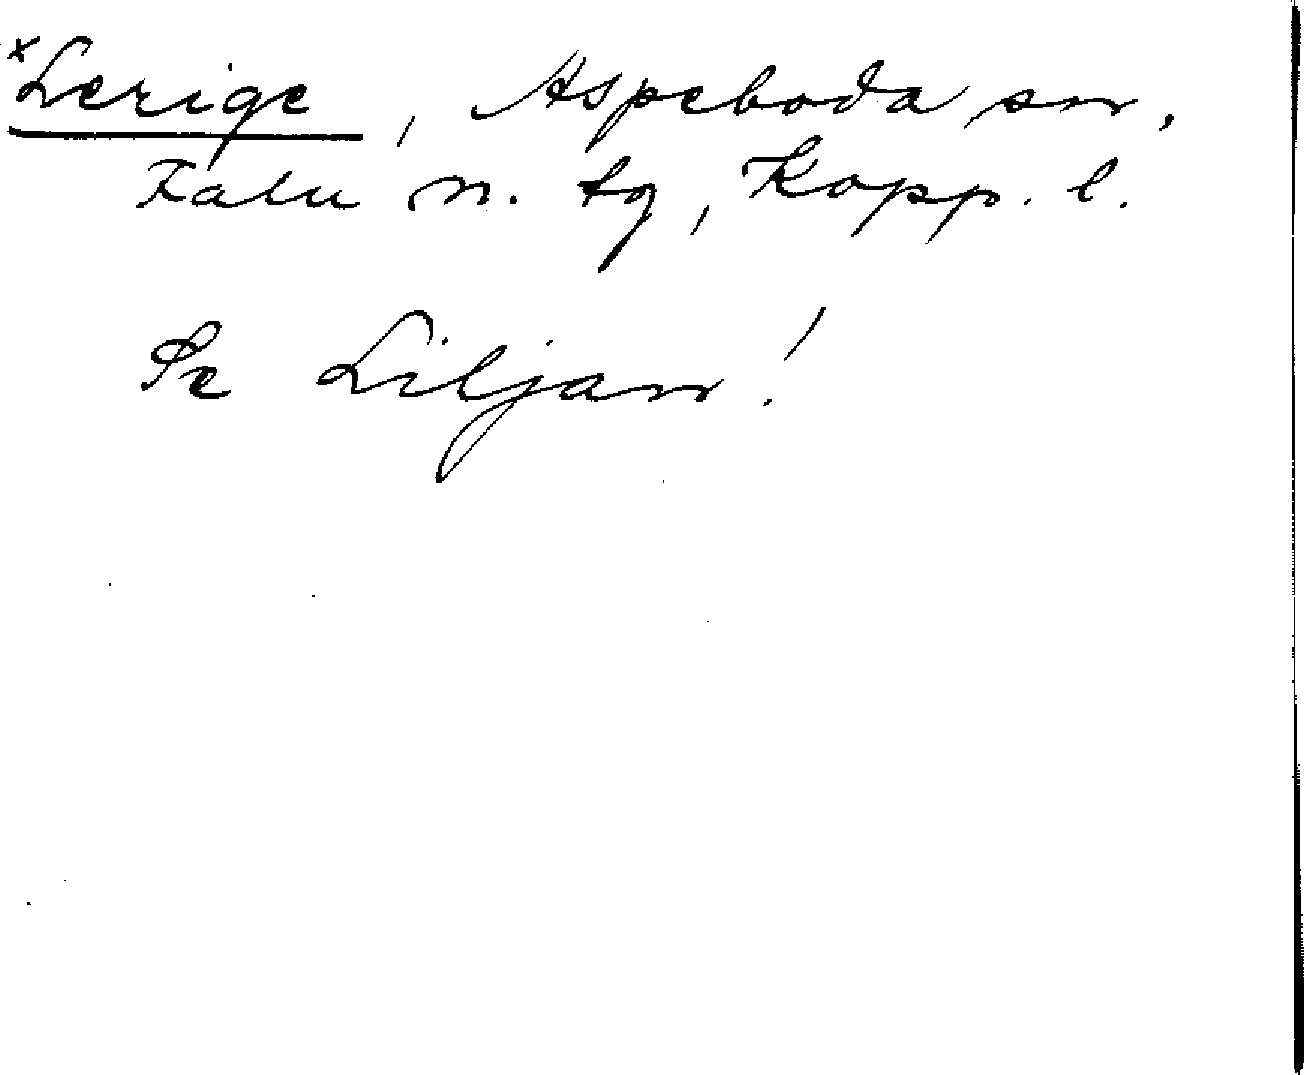 *Lerige, Aspeboda sn,
Falu n. tg, Kopp. l.
Se Liljan!